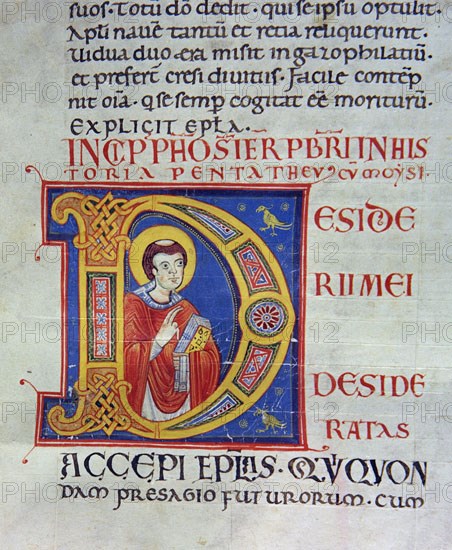 suos. Totū dō dedit. qui se ipsū optulit.
Apłi nauē tantū et retia reliquerunt.
Vidua duo era misit in gazophilatiū.
et prefert̄ cresi diuitiis. Facile contēp
nit oīa. q̄ se semp̄ cogitat eē moriturū.
EXPLICIT EPŁA.
INCIP PHO STI IER PBRI IN HIS
TORIA PENTATHEVCŪ MOYSI.
D
ESIDE
RII MEI
DESIDE
RATAS
ACCEPI EPŁAS. QVI QVON
DAM PRESAGIO FUTURORUM. CUM